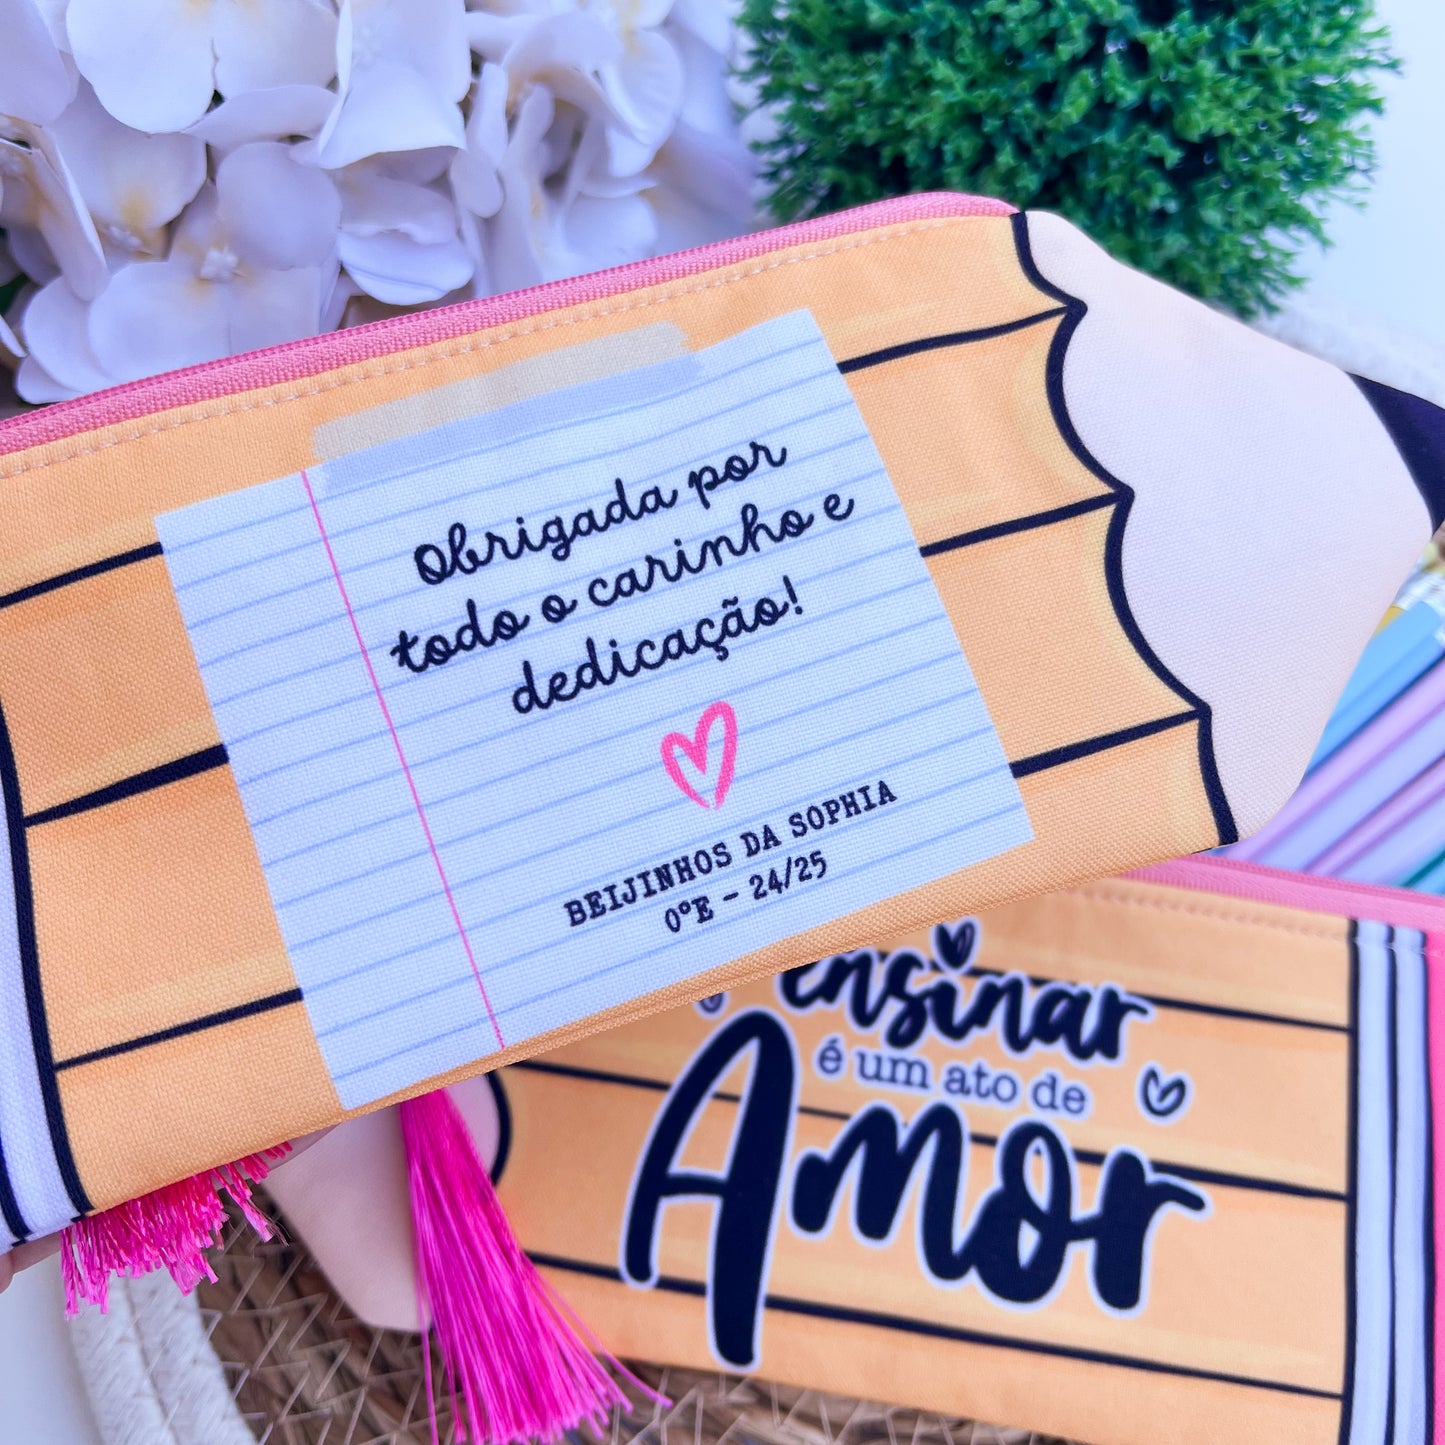 Obrigada por
todo o carinho e
dedicação!
BEIJINHOS DA SOPHIA
0ºE - 24/25
ensinar
é um ato de
Amor